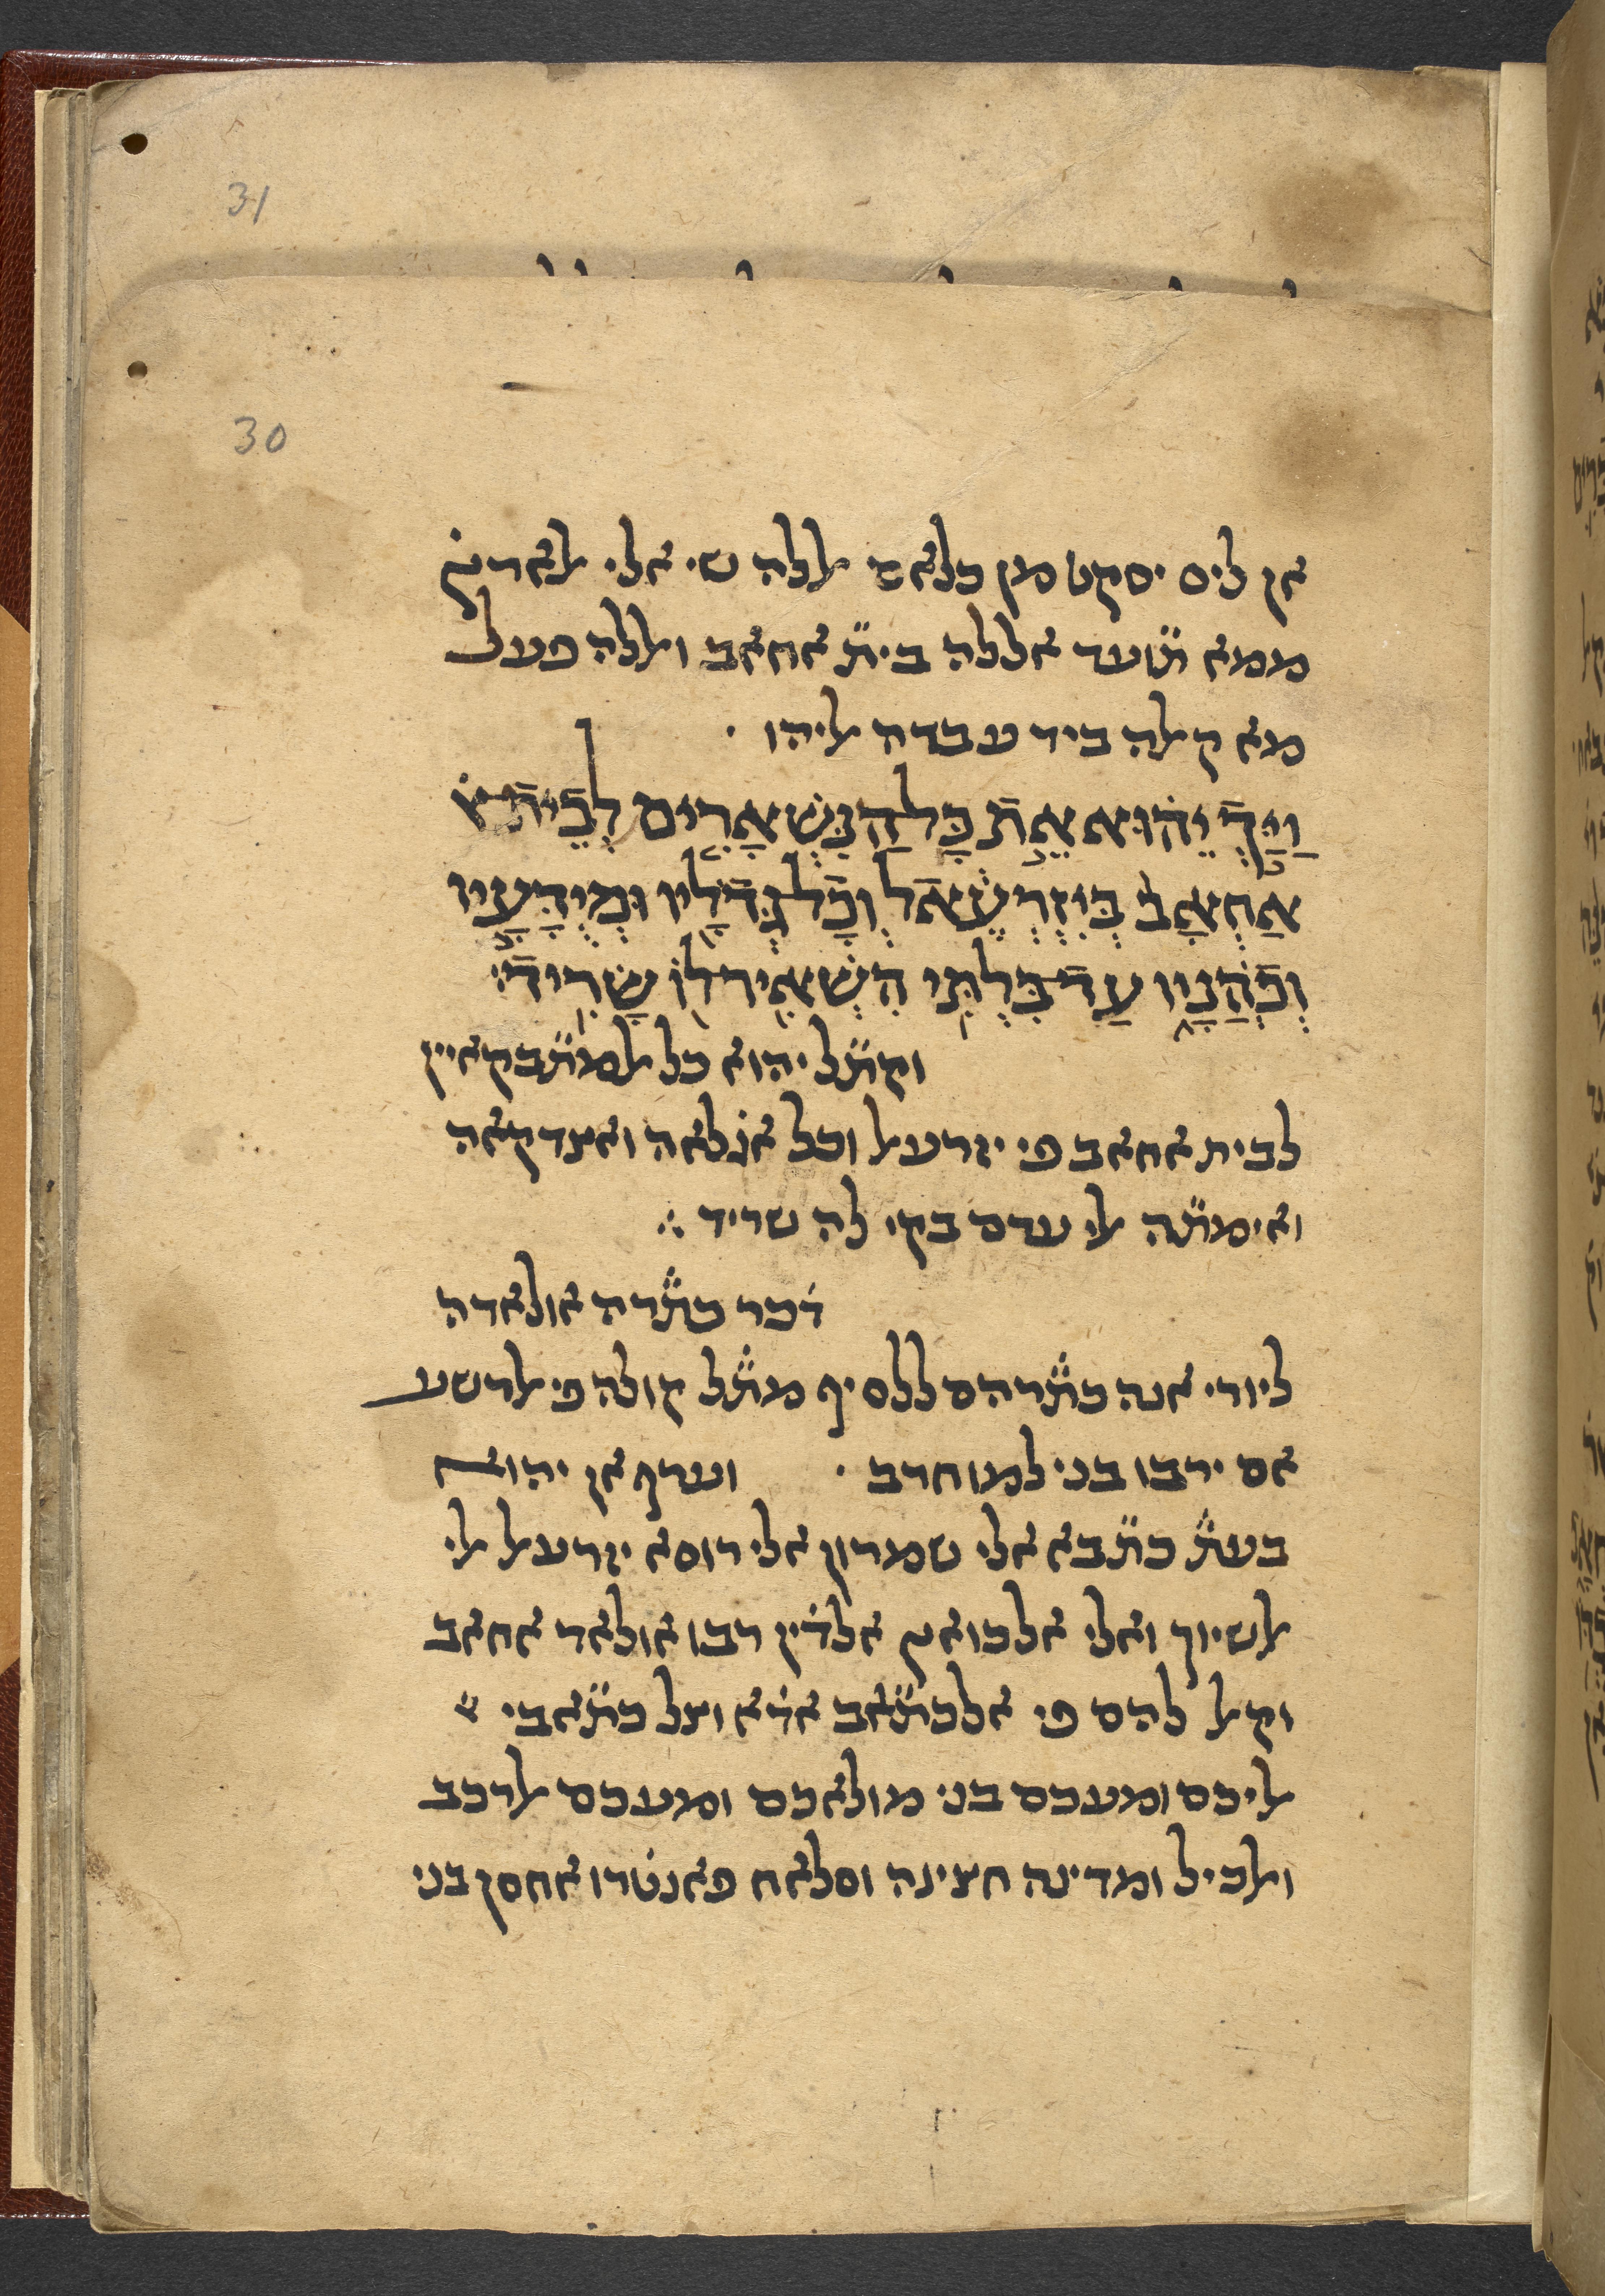 31
30
אן ליס יסקט מן כלאם אללה שי אלי אלארץ̇
ממא תועד אללה בית אחאב ואללה פעל
מא קאלה ביד עבדה אליהו ·
וַיַּךְ יֵהוּא אֵת כָּל הַנִּשְׁאָרִים לְבֵית
אַחְאָב בְּיִזְרְעֶאל וְכָל גְּדֹלָיו וּמְיֻדָּעָיו
וְכֹהֲנָיו עַד בִּלְתִּי הִשְׁאִיר לוֹ שָׂרִיד׃
וקתל יהוא כל אלמתבקאיין
לבית אחאב פי יזרעאל וכל אג̇לאה ואצדקאה
ואימתה אלי עדם בקי לה שריד ∴
ד̇כר כת̈רה אולאדה
ליורי אנה כת̈רהם ללסיף מת̈ל קולה פי אלרשע
אם ירבו בניו למו חרב · וערף אן יהוא
בעת̈ כתבא אלי שמרון אלי רוסא יזרעאל אלי
אלשיוך ואלי אלכואץ̇ אלד̇ין רבו אולאד אחאב
וקאל להם פי אלכתאב אד̇א וצל כתאבי ∴
אליכם ומעכם בני מולאכם ומעכם אלרכב
ואלכיל ומדינה חצינה וסלאח פאנט̇רו אחסן בני